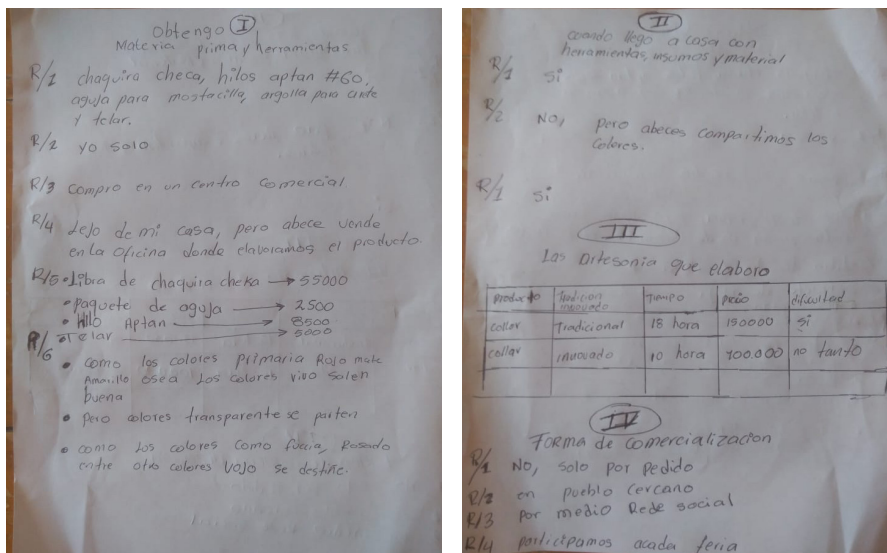 Obtengo I
Materia prima y herramientas
R/1 chaquira checa, hilos aptan #60,
aguja para mostacilla, argolla para
y telar.
R/2 yo solo
R/3 compro en un centro comercial
R/4 Lejo de mi casa, pero abece vende
en la oficina donde elavoramos el producto.
R/5 • Libra de chaquira cheka → 55000
• paquete de aguja → 2500
• Hilo Aptan → 8500
• Telar → 5000
R/6
• como los colores primaria Rojo mate
Amarillo osea los colores vivo salen
buena
• pero colores transparente se parten
• como los colores como fucia, Rosado
entre otro colores vojo se destiñe.
II
cuando llego a casa con
herramientas, insumos y material
R/1 si
R/2 NO, pero abeces compartimos los
colores.
R/1 si
III
Las artesonia que elaboro
producto Tradicion innovado Tiempo precio dificultad
collar Tradicional 18 hora 150000 si
collar innovado 10 hora 100.000 no tanto
IV
Forma de comercializacion
R/1 NO, solo por pedido
R/2 en pueblo cercano
R/3 por medio Rede social
R/4 participamos acada feria